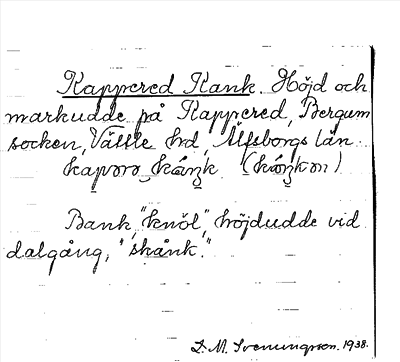 Kappered Kank. Höjd och
markudde på Kappered, Bergum
socken, Vättle hd, Älfsborgs län.
Bank, "knöl", höjdudde vid
dalgång, "skånk."
D. M. Svenungsson. 1938.